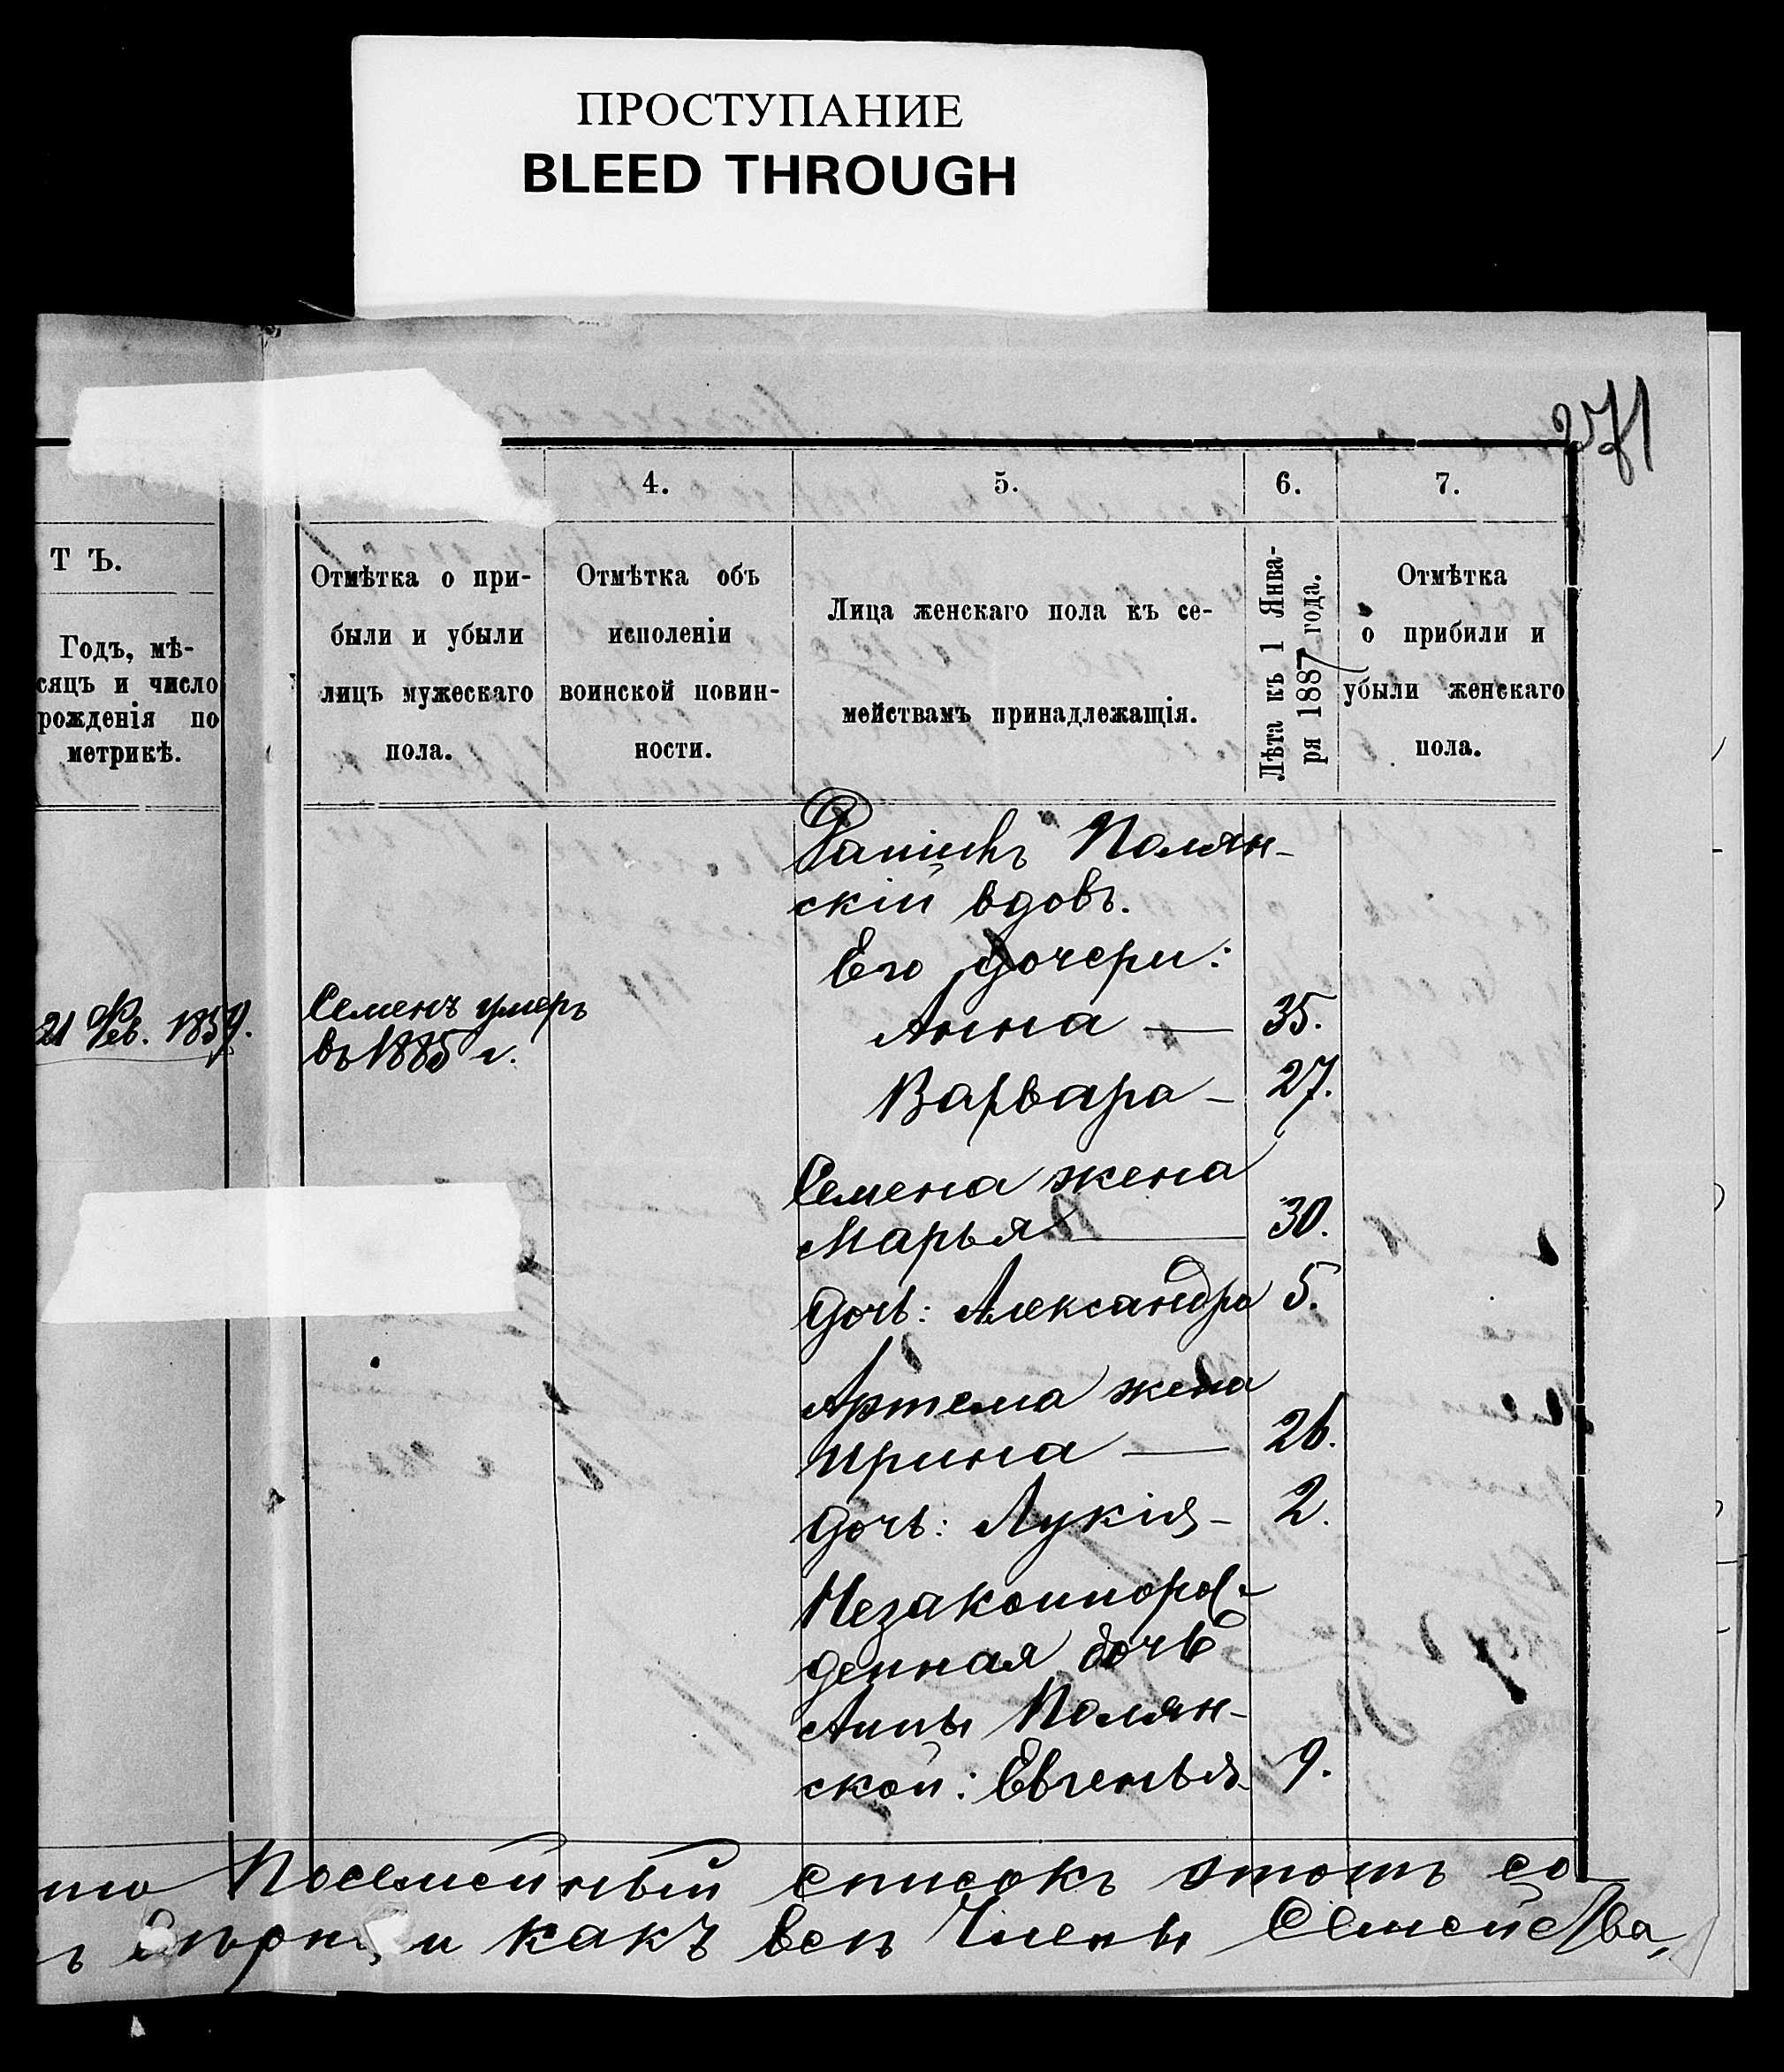 ПРОСТУПАНИЕ
BLEED THROUGH
271
4.
5.
6.
7.
Т Ъ.
Годъ, мѣ-
сяцъ и число
рожденія по
метрикѣ.
Отмѣтка о при-
были и убыли
лицъ мужескаго
пола.
Отмѣтка объ
исполеніи
воинской повин-
ности.
Лица женскаго пола къ се-
мействамъ принадлежащія.
Лѣта къ 1 Янва-
ря 1887 года.
Отмѣтка
о прибили и
убыли женскаго
пола.
21 Фев. 1859.
Семенъ умеръ
въ 1885 г.
Полян-
скій вдовъ.
Его дочери:
Анна — 35.
Варвара - 27.
Семена жена
Марья 30.
дочь: Александра 5.
Артема жена
Ирина — 26.
дочь: Лукія - 2.
Незаконнорож-
денная дочь
Анны Полян-
ской: Евгенья 9.
что Посемейный списокъ этотъ со-
и какъ всѣ Члены Семейства,